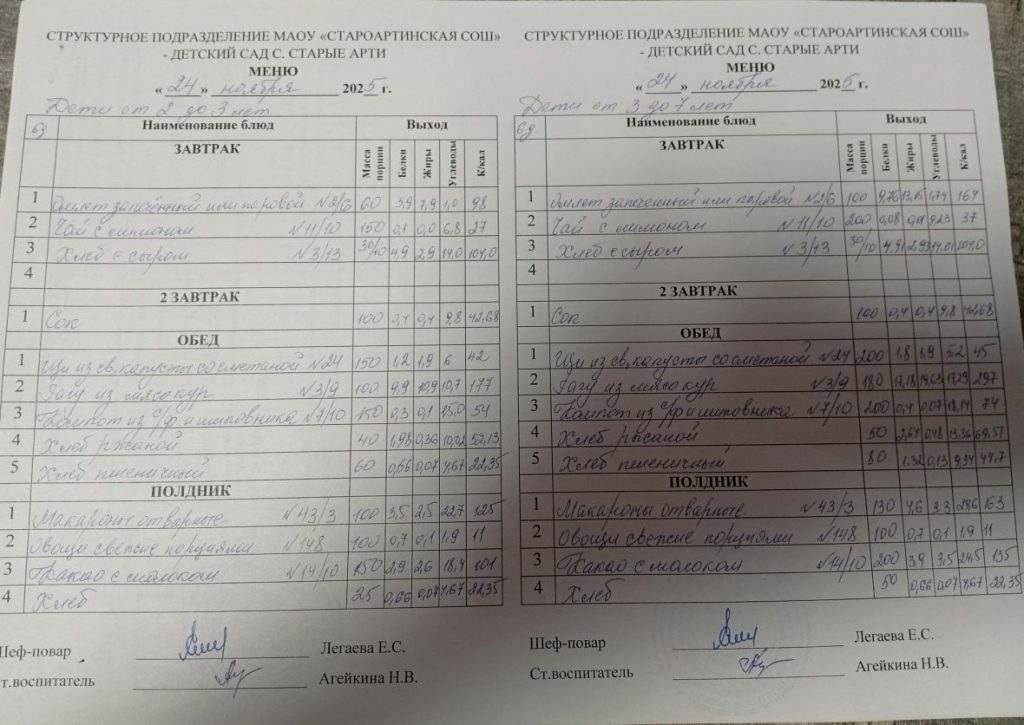 СТРУКТУРНОЕ ПОДРАЗДЕЛЕНИЕ МАОУ «СТАРОАРТИНСКАЯ СОШ»
- ДЕТСКИЙ САД С. СТАРЫЕ АРТИ
МЕНЮ
« 24 » ноября 2025 г.
Дети от 2 до 3 лет
Наименование блюд Выход
ЗАВТРАК Масса порции Белки Жиры Углеводы К/кал
1 Омлет запечённый или паровой №2/6 60 5,9 7,9 1,0 98
2 Чай с лимоном №11/10 150 0,1 0,0 6,8 27
3 Хлеб с сыром №3/13 30/10 4,9 2,9 14,0 104,0
4
2 ЗАВТРАК
1 Сок 100 0,4 0,4 9,8 42,68
ОБЕД
1 Щи из св. капусты со сметаной №24 150 1,2 1,9 6 42
2 Рагу из мясо кур №3/9 100 9,9 10,9 10,7 177
3 Компот из с/ф и шиповника №7/10 150 0,3 0,1 15,0 54
4 Хлеб ржаной 40 1,98 0,36 10,02 52,13
5 Хлеб пшеничный 60 0,66 0,07 4,67 22,35
ПОЛДНИК
1 Макароны отварные №43/3 100 3,5 2,5 22,7 125
2 Овощи свежие порциями №148 100 0,7 0,1 1,9 11
3 Какао с молоком №14/10 150 2,9 2,6 18,4 101
4 Хлеб 25 0,66 0,07 4,67 22,35
Шеф-повар Легаева Е.С.
Ст.воспитатель Агейкина Н.В.
СТРУКТУРНОЕ ПОДРАЗДЕЛЕНИЕ МАОУ «СТАРОАРТИНСКАЯ СОШ»
- ДЕТСКИЙ САД С. СТАРЫЕ АРТИ
МЕНЮ
« 24 » ноября 2025 г.
Дети от 3 до 7 лет
Наименование блюд Выход
ЗАВТРАК Масса порции Белки Жиры Углеводы К/кал
1 Омлет запеченный или паровой №2/6 100 9,76 13,15 1,74 164
2 Чай с лимоном №11/10 200 0,08 9,23 37
3 Хлеб с сыром №3/13 30/10 4,91 2,93 14,01 104,0
4
2 ЗАВТРАК
1 Сок 100 0,4 0,4 9,8 42,68
ОБЕД
1 Щи из св. капусты со сметаной №24 200 1,8 1,9 5,2 45
2 Рагу из мясо кур №3/9 180 17,18 19,63 17,29 297
3 Компот из с/ф и шиповника №7/10 200 0,4 0,07 18,14 74
4 Хлеб ржаной 50 2,64 0,48 13,36 69,51
5 Хлеб пшеничный 80 1,32 0,13 9,34 44,7
ПОЛДНИК
1 Макароны отварные №43/3 130 4,6 3,3 29,6 163
2 Овощи свежие порциями №148 100 0,7 0,1 1,9 11
3 Какао с молоком №14/10 200 3,9 3,5 24,5 135
4 Хлеб 50 0,66 0,07 4,67 22,35
Шеф-повар Легаева Е.С.
Ст.воспитатель Агейкина Н.В.